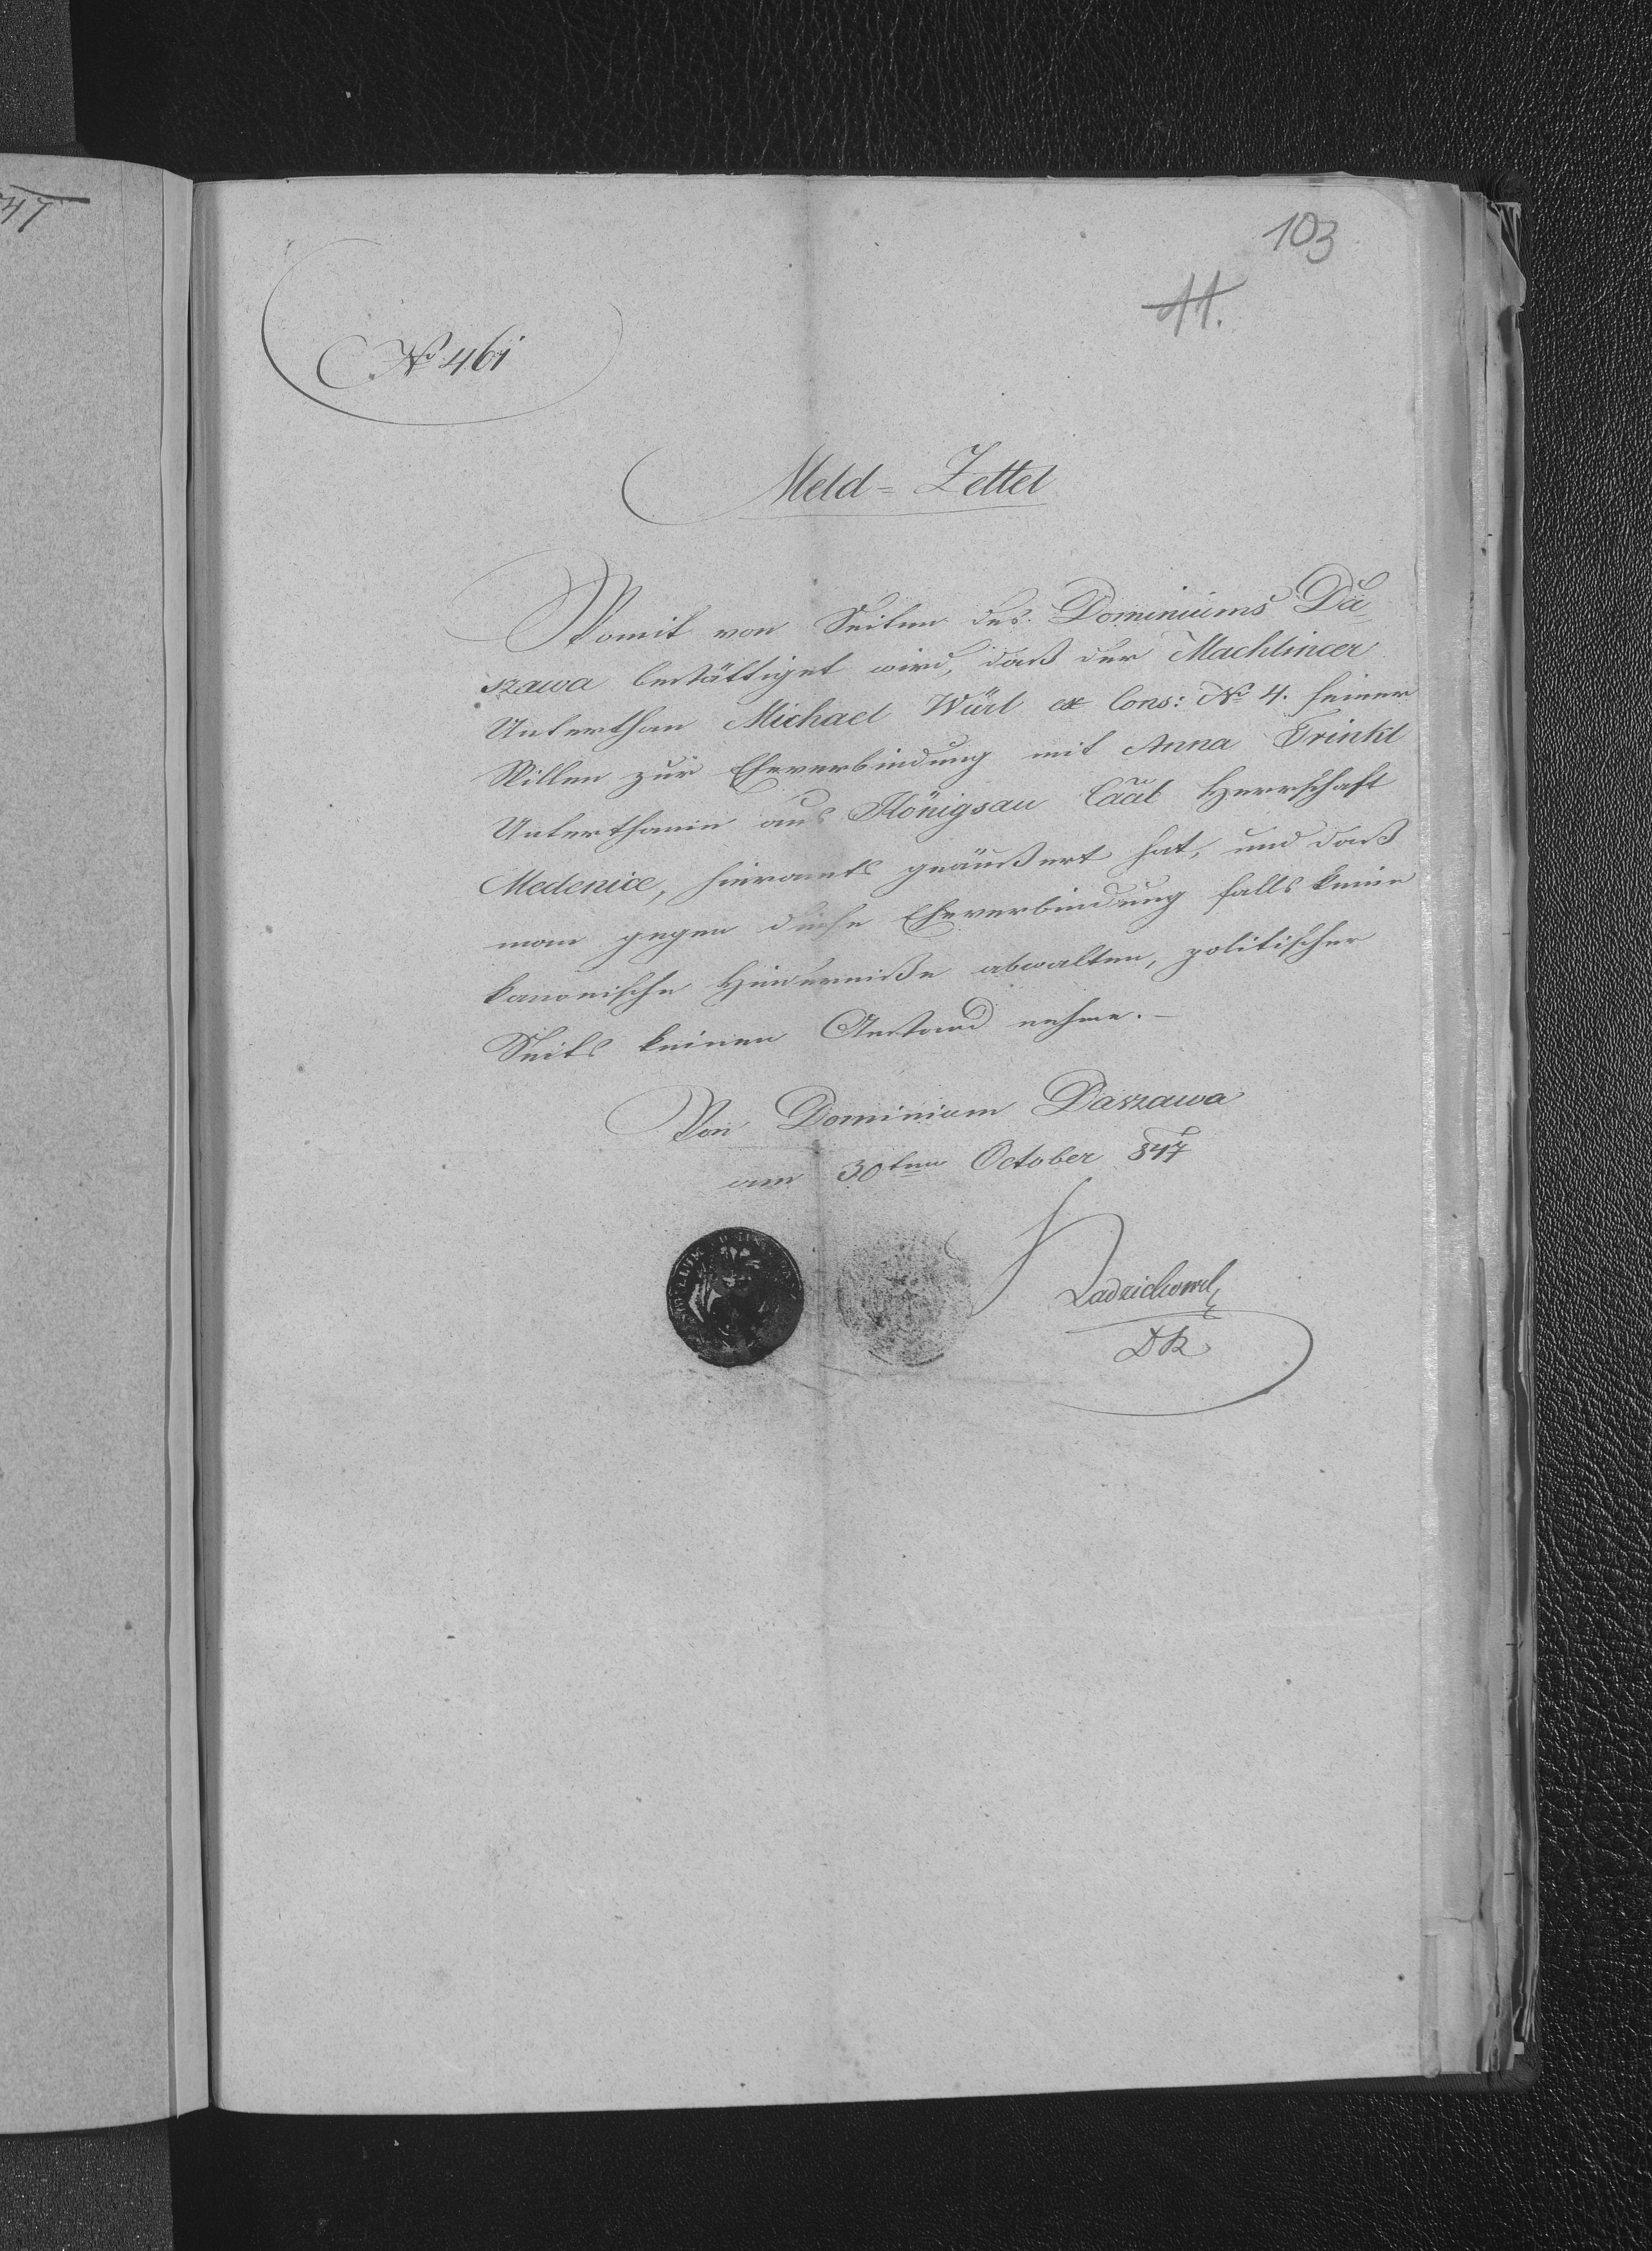 47
103
11.
No 461
Meld=Zettel
Womit von Seiten des Dominiums Da=
szawa bestättiget wird, daß der Machlincer
Unterthan Michael Würl ex Cons: No 4. seinen
Willen zur Eheverbindung mit Anna Trinkl
Unterthanin aus Königsau Caãl Herrschaft
Medenice, hieramts geäußert hat, und daß
man gegen diese Eheverbindung falls keine
kanonische Hinderniße abwalten, politischer
Seits keinen Anstand nehme.–
Von Dominium Daszawa
am 30ten October 847
DR